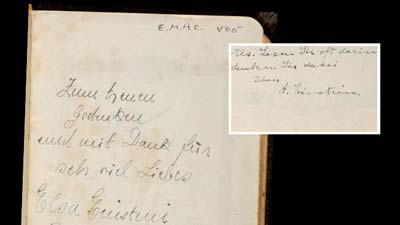 E.M.A.C. VOO
Zum treuen
Gedenken
und mit Dank für
sehr viel Liebes
Elsa Einstein
Lesen Sie oft darin
denken Sie dabei
A. Einstein.